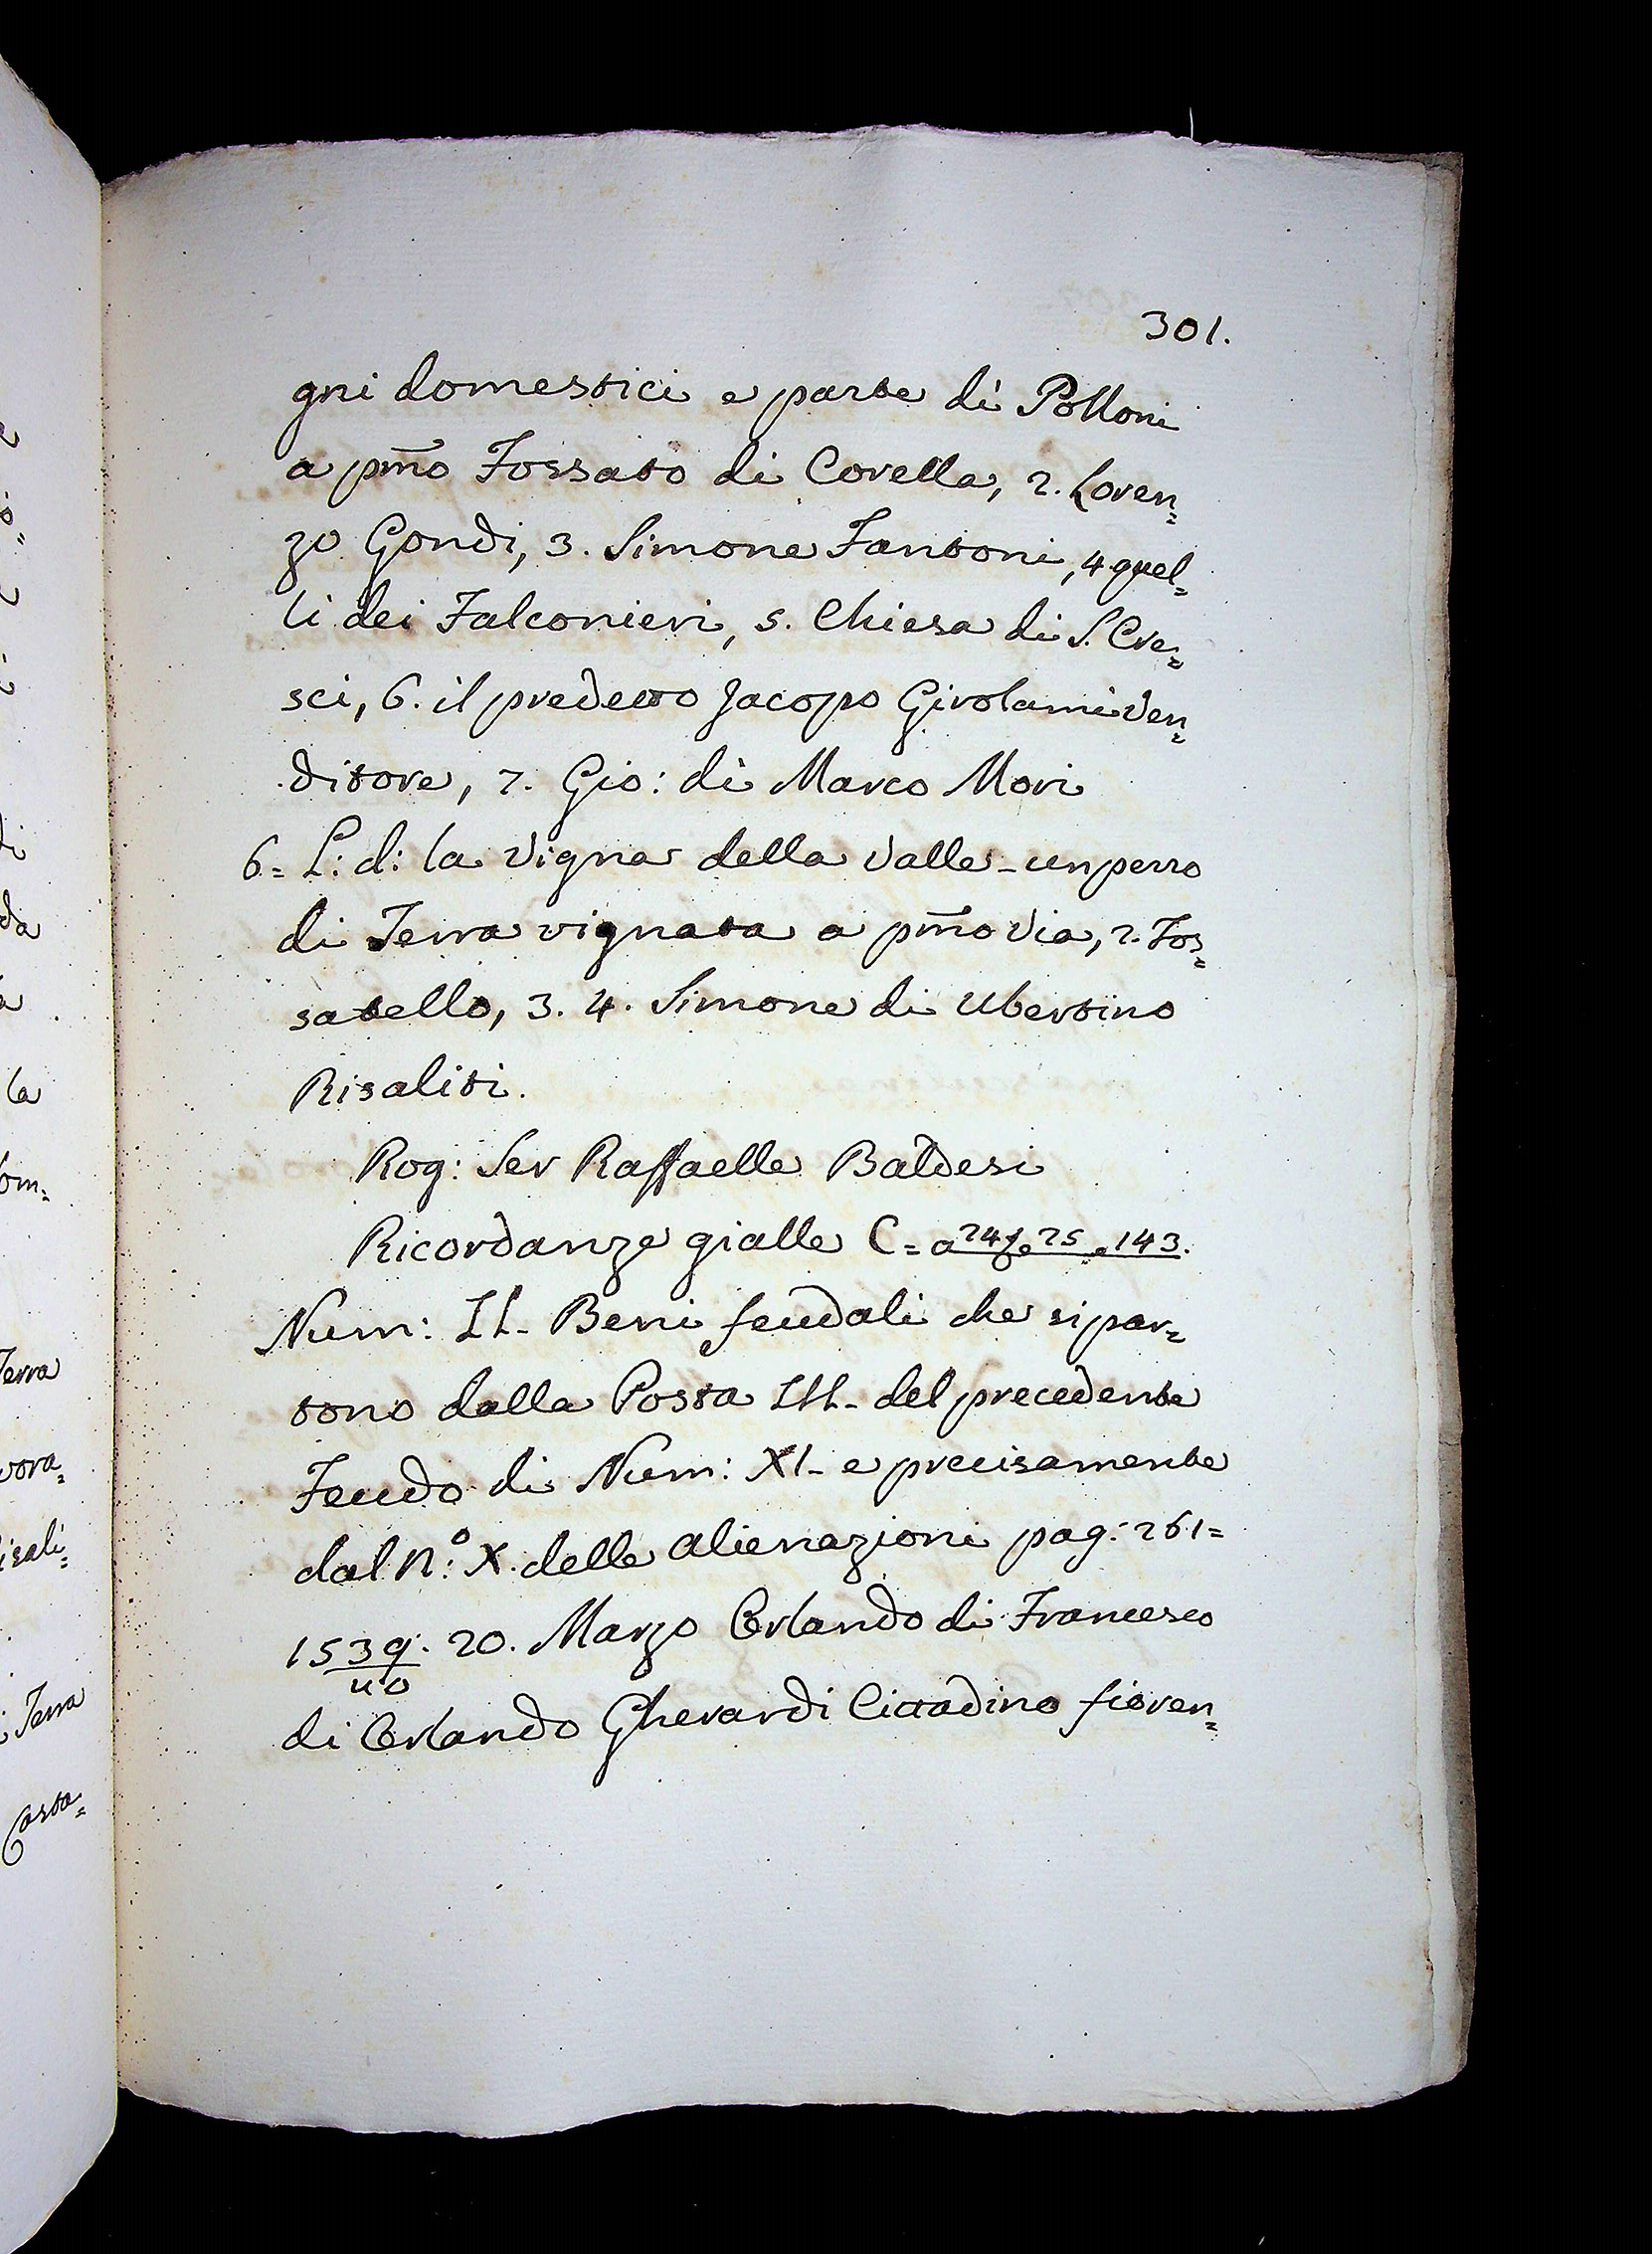 301.
gni domestici e parte di Polloni
a pm̃o Fossato di Corella, 2. Loren=
zo Gondi, 3. Simone Fantoni, 4 quel=
li dei Falconieri, 5. Chiesa di S. Cre=
sci, 6. il predetto Jacopo Girolami Ven=
ditore, 7. Gio: di Marco Mori
6= L: d: la Vigna della Valle - un pezzo
di Terra vignata a pm̃o Via, 2. Fos=
satello, 3. 4. Simone di Ubertino
Risaliti.
Rog: Ser Raffaelle Baldesi
Ricordanze gialle C= a 24 e 25 e 143.
Num: II- Beni feudali che si par=
tono dalla Posta III- del precedente
Feudo di Num: XI- e precisamente
dal N.º X. delle alienazioni pag: 261=
1539. 20. Marzo Orlando di Francesco
40
di Orlando Gherardi Cittadino fioren=
la
om=
Terra
vora=
isali=
Terra
Casta=